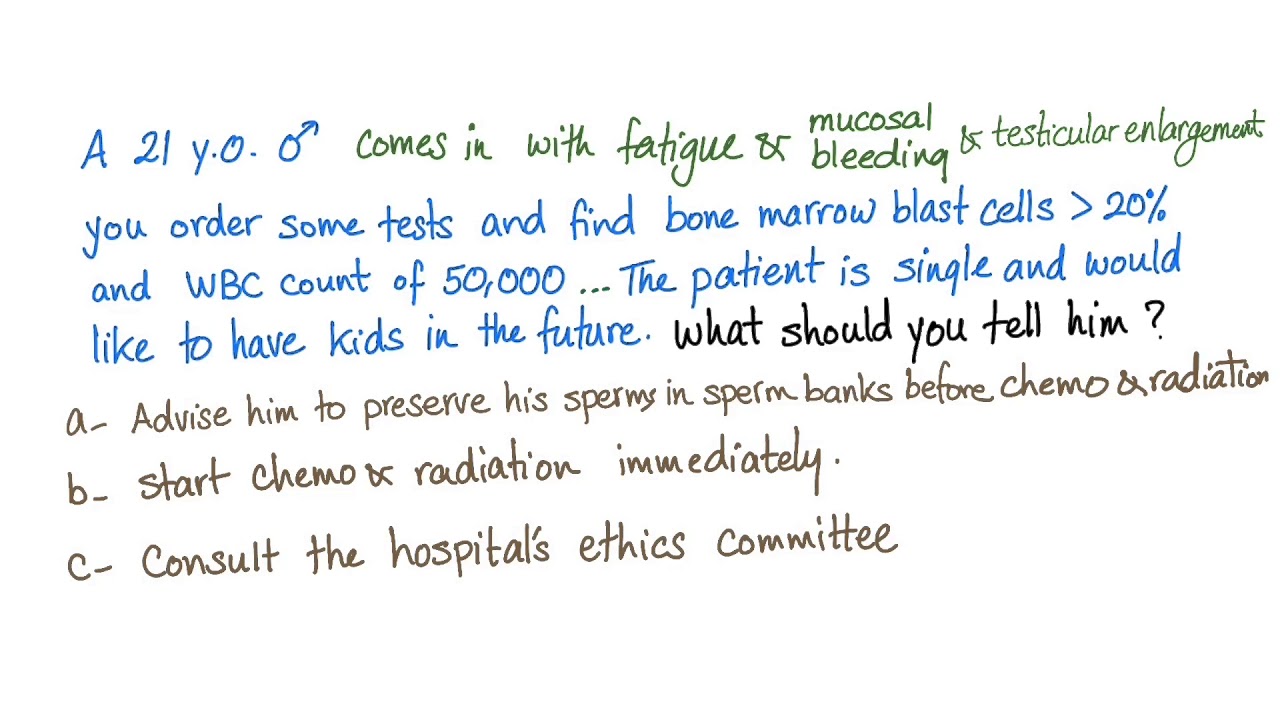 A 21 y.o. ♂ comes in with fatigue & mucosal bleeding & testicular enlargement
you order some tests and find bone marrow blast cells > 20%
and WBC count of 50,000 ... The patient is single and would
like to have kids in the future. what should you tell him ?
a- Advise him to preserve his sperms in sperm banks before chemo & radiation
b- start chemo & radiation immediately.
c- Consult the hospital's ethics committee